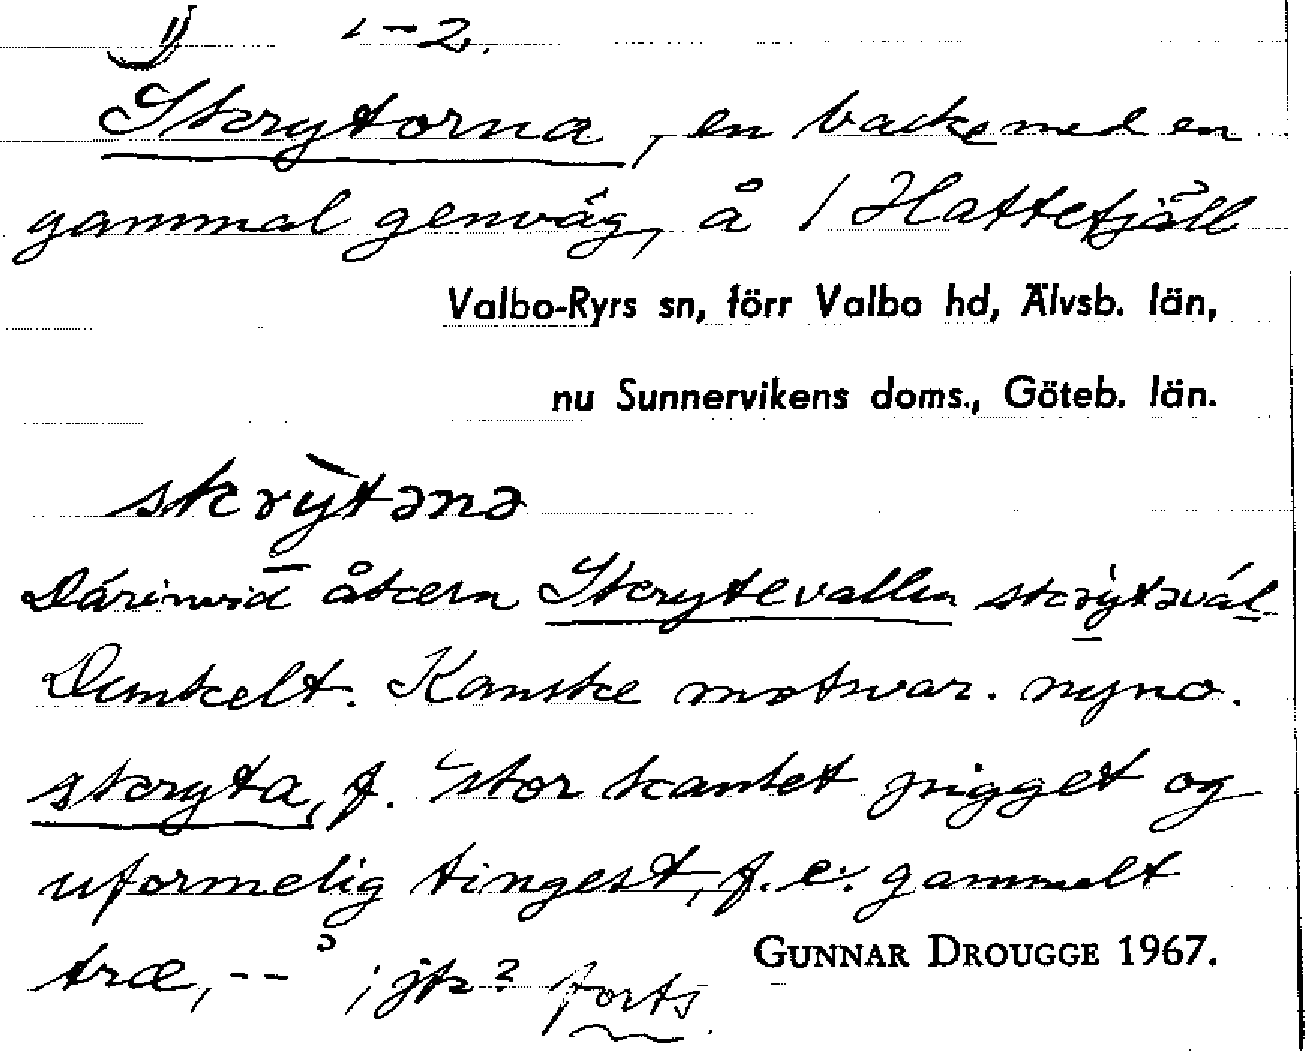 1) 1-2.
Skrytorna, en backe med en
gammal genväg, å 1 Hattefjäll
Valbo-Ryrs sn, förr Valbo hd, Älvsb. län,
nu Sunnervikens doms., Göteb. län.
skrỳtənə
Därinvid åkern Skrytevallen skrỳtəvál
Dunkelt. Kanske motsvar. nyno.
skryta, f. 'stor kantet pigget og
uformelig tingest, f. e. gammelt
træ, --'; jfr? forts.
GUNNAR DROUGGE 1967.